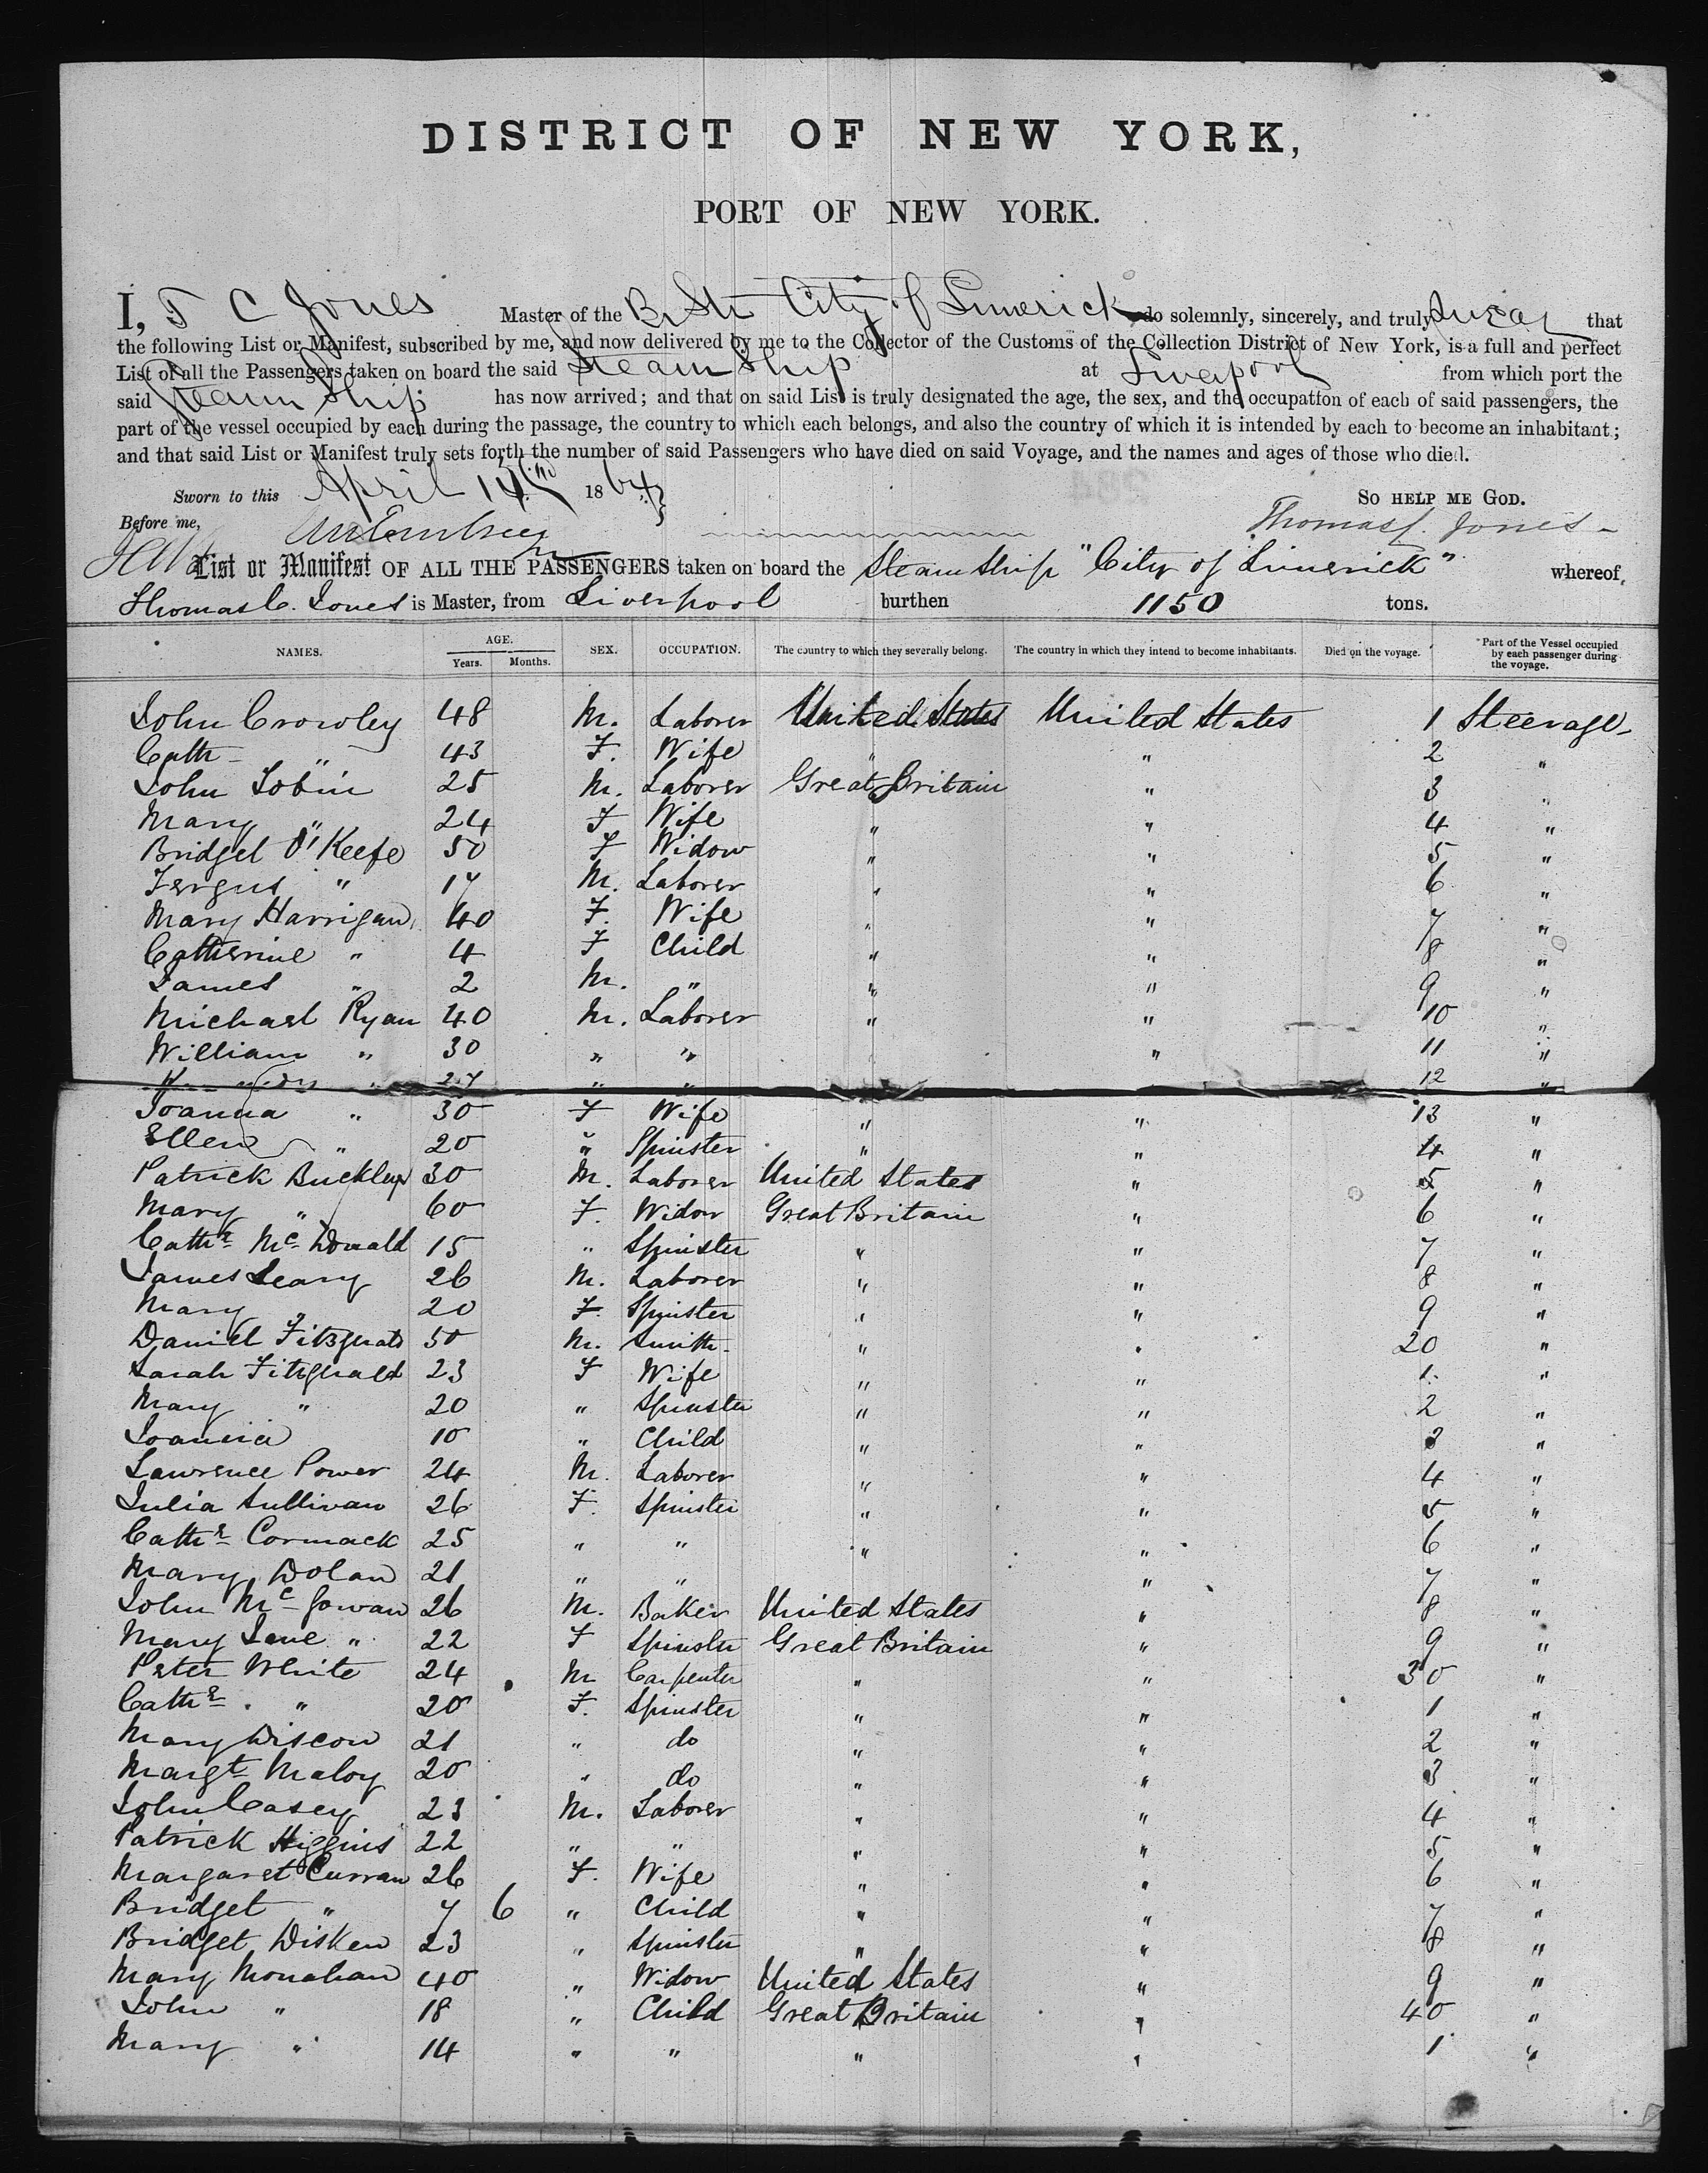 DISTRICT OF NEW YORK,
PORT OF NEW YORK.
I, T C Jones Master of the Br Str City of Limerick do solemnly, sincerely, and truly swear that
the following List or Manifest, subscribed by me, and now delivered by me to the Collector of the Customs of the Collection District of New York, is a full and perfect
List of all the Passengers taken on board the said Steam Ship at Liverpool from which port the
said Steam Ship has now arrived; and that on said List is truly designated the age, the sex, and the occupation of each of said passengers, the
part of the vessel occupied by each during the passage, the country to which each belongs, and also the country of which it is intended by each to become an inhabitant;
and that said List or Manifest truly sets forth the number of said Passengers who have died on said Voyage, and the names and ages of those who died.
Sworn to this April 1864 SO HELP ME GOD.
Before me, Thomas C. Jones
List or Manifest OF ALL THE PASSENGERS taken on board the Steam Ship "City of Limerick" whereof,
Thomas C. Jones is Master, from Liverpool burthen 1150 tons.
NAMES. AGE. Years. Months. SEX. OCCUPATION. The country to which they severally belong. The country in which they intend to become inhabitants. Died on the voyage. Part of the Vessel occupied by each passenger during the voyage.
John Crowley 48 M. Laborer United States United States 1 Steerage
Cath " 43 F. Wife " " 2 "
John Tobin 25 M. Laborer Great Britain " 3 "
Mary " 24 F Wife " " 4 "
Bridget O'Keefe 50 F Widow " " 5 "
Fergus " 17 M. Laborer " " 6 "
Mary Harrigan 40 F. Wife " " 7 "
Catherine " 4 F Child " " 8 "
James " 2 M. " " " 9 "
Michael Ryan 40 M. Laborer " " 10 "
William " 30 " " " " 11 "
" 27 " " 12 "
Joanna " 30 F Wife " " 13 "
Ellen " 20 " Spinster " " 4 "
Patrick Buckley 30 M. Laborer United States " 5 "
Mary " 60 F. Widow Great Britain " 6 "
Cathe McDonald 15 " Spinster " " 7 "
James Leary 26 M. Laborer " " 8 "
Mary " 20 F. Spinster " " 9 "
Daniel Fitzgerald 50 M. Smith " " 20 "
Sarah Fitzgerald 23 F Wife " " 1 "
Mary " 20 " Spinster " " 2 "
Joanna 10 " Child " " 3 "
Lawrence Power 24 M. Laborer " " 4 "
Julia Sullivan 26 F. Spinster " " 5 "
Cathe Cormack 25 " " " " 6 "
Mary Dolan 21 " " " 7 "
John McGowan 26 M. Baker United States " 8 "
Mary Jane " 22 F Spinster Great Britain " 9 "
Peter White 24 M Carpenter " " 30 "
Cathe " 20 F. Spinster " " 1 "
Mary Discon 21 " do " " 2 "
Margt Maloy 20 " do " " 3 "
John Casey 23 M. Laborer " " 4 "
Patrick Higgins 22 " " " " 5 "
Margaret Curran 26 F. Wife " " 6 "
Bridget " 7 6 " Child " " 7 "
Bridget Disken 23 " Spinster " " 8 "
Mary Monahan 40 " Widow United States " 9 "
John " 18 " Child Great Britain " 40 "
Mary " 14 " " " " 1 "